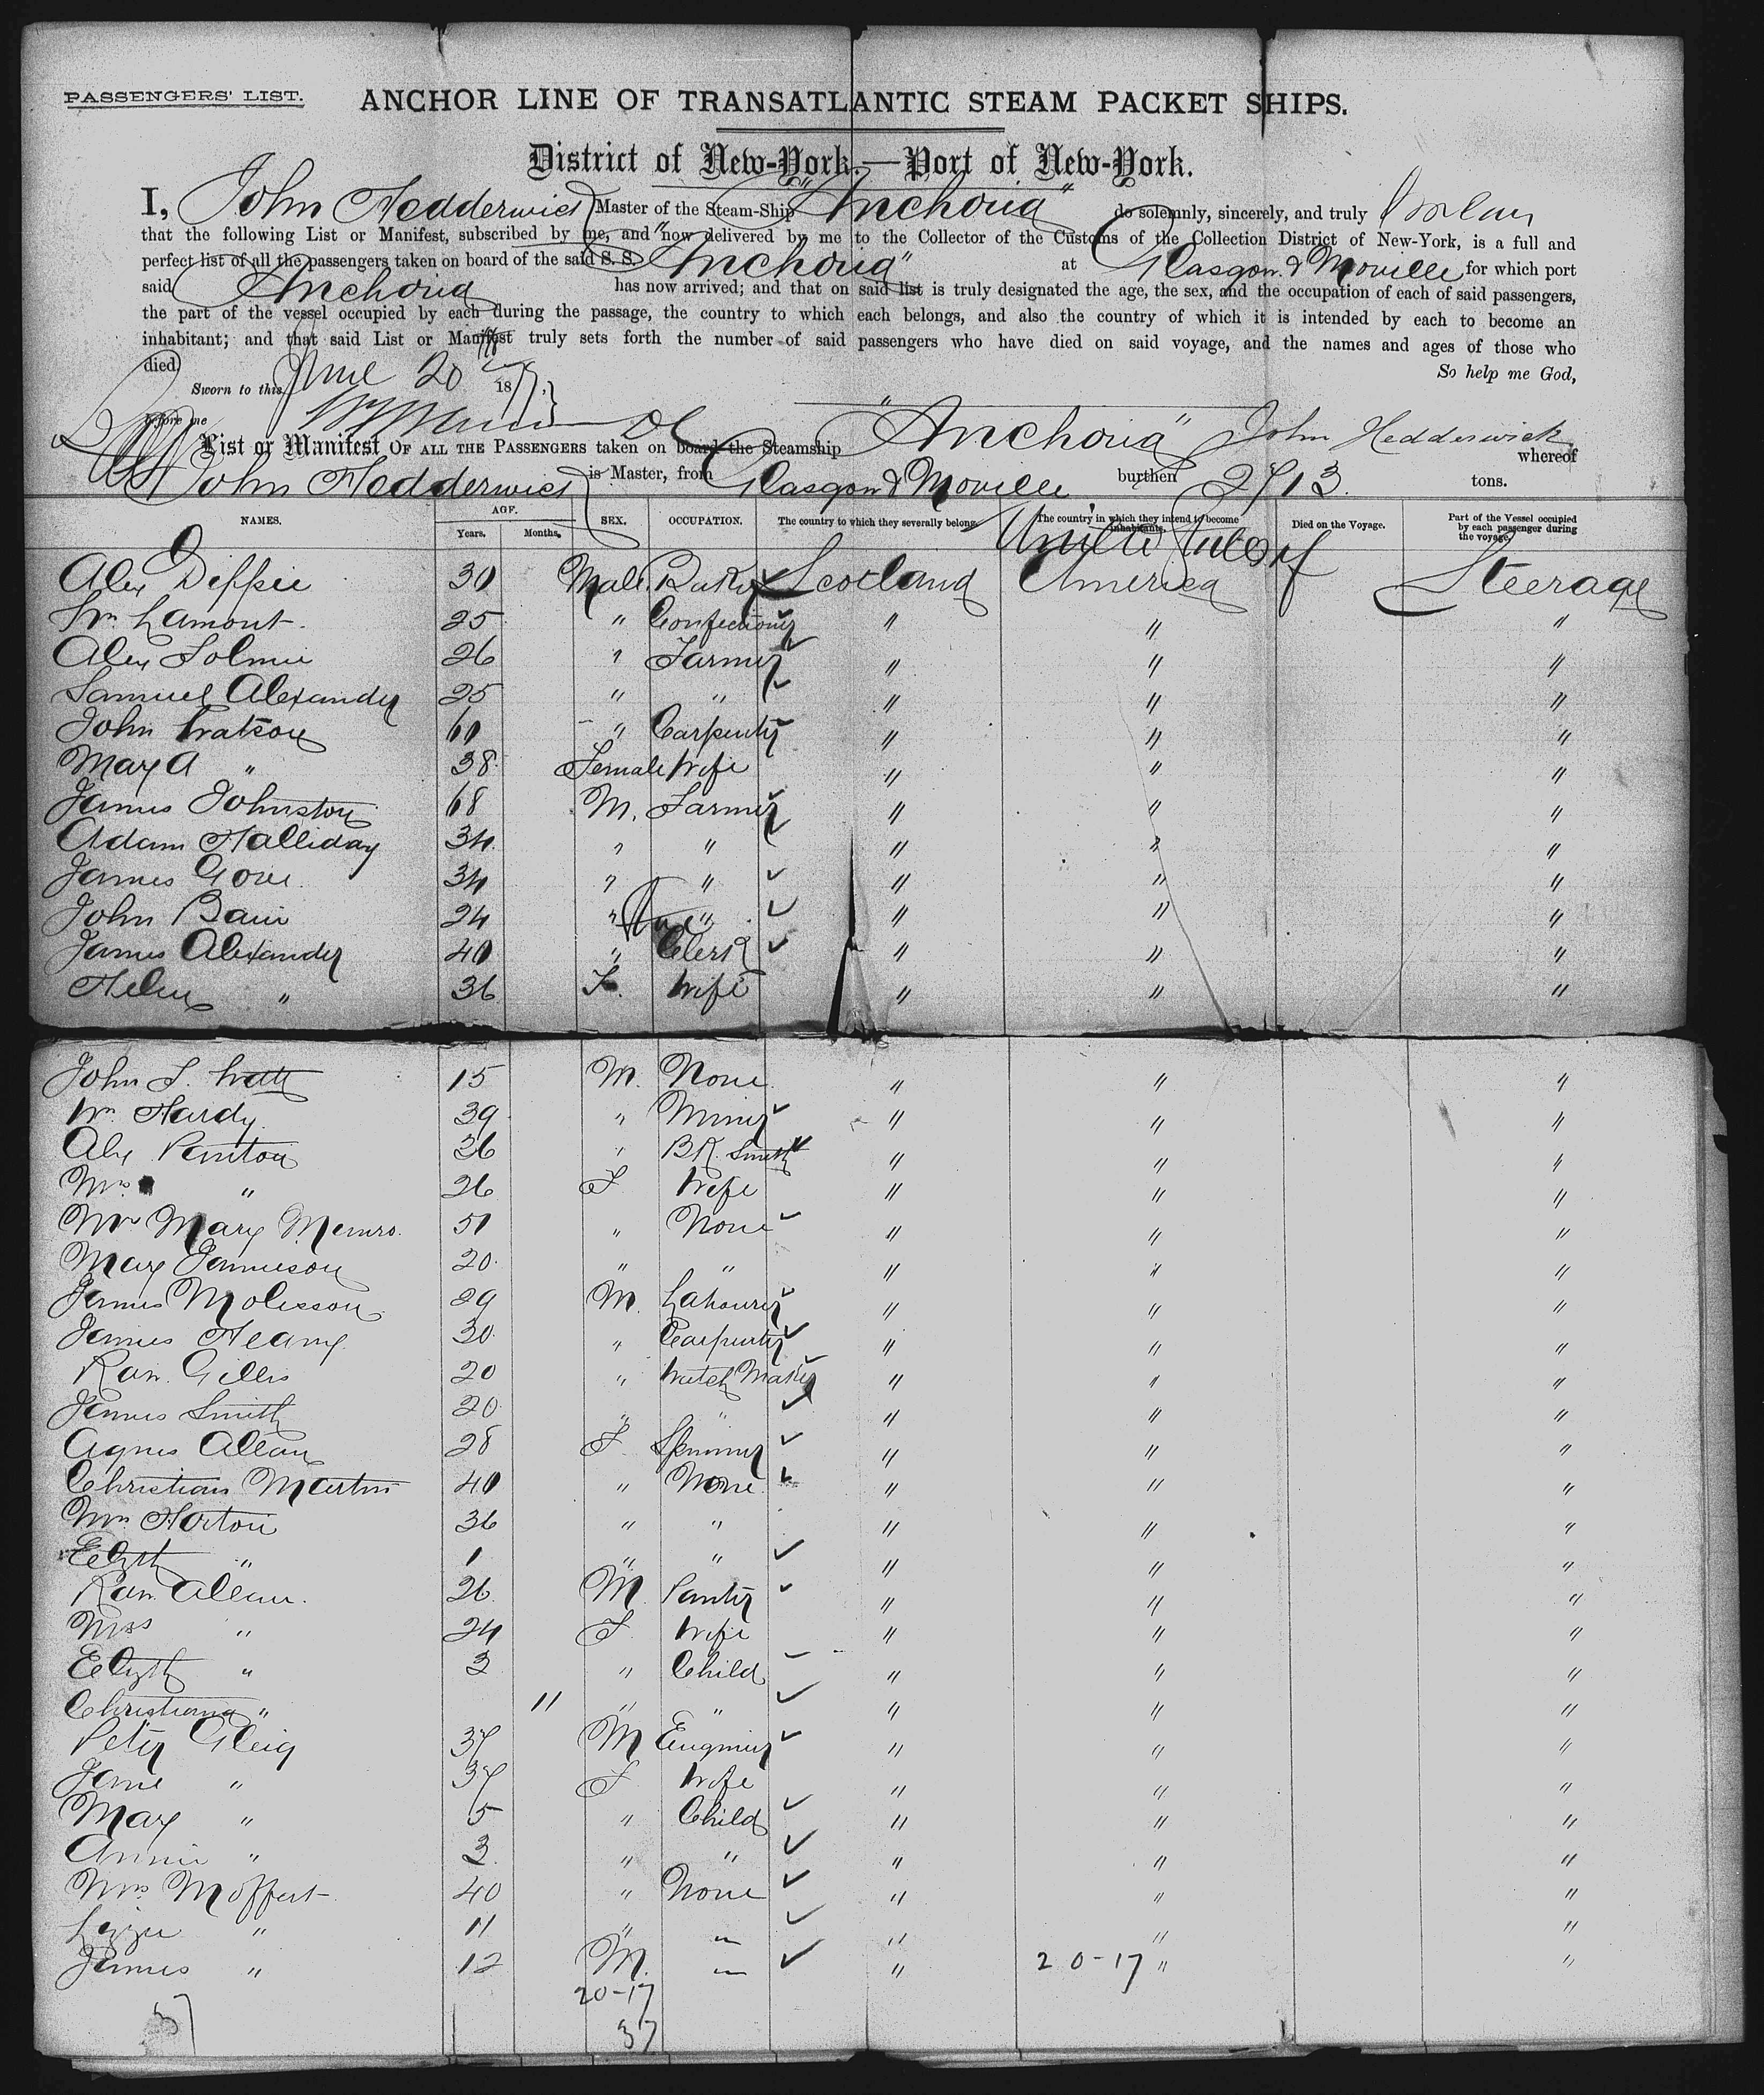 PASSENGERS' LIST.
ANCHOR LINE OF TRANSATLANTIC STEAM PACKET SHIPS.
District of New-York.—Port of New-York.
I, John Hedderwick Master of the Steam-Ship "Anchoria" do solemnly, sincerely, and truly swear
that the following List or Manifest, subscribed by me, and now delivered by me to the Collector of the Customs of the Collection District of New-York, is a full and
perfect list of all the passengers taken on board of the said S. S. "Anchoria" at Glasgow & Moville for which port
said Anchoria has now arrived; and that on said list is truly designated the age, the sex, and the occupation of each of said passengers,
the part of the vessel occupied by each during the passage, the country to which each belongs, and also the country of which it is intended by each to become an
inhabitant; and that said List or Manifest truly sets forth the number of said passengers who have died on said voyage, and the names and ages of those who
died.
So help me God,
Sworn to this June 20 187
before me
John Hedderwick
List or Manifest OF ALL THE PASSENGERS taken on board the Steamship "Anchoria" whereof
John Hedderwick is Master, from Glasgow & Moville burthen 2713. tons.
NAMES. AGE. Years. Months. SEX. OCCUPATION. The country to which they severally belong. The country in which they intend to become inhabitants. Died on the Voyage. Part of the Vessel occupied by each passenger during the voyage.
United States of
Alex Dippie 30 Male Baker Scotland America Steerage
Wm Lamont. 25 " Confectioner " " "
Alex Tolmie 26 " Farmer " " "
Samuel Alexander 25 " " " " "
John Watson 60 " Carpenter " " "
Mary A " 38 Female Wife " " "
James Johnston 68 M. Farmer " " "
Adam Halliday 34 " " " " "
James Gow. 34 " " " " "
John Bain 24 " " " " "
James Alexander 40 " Clerk " " "
Helen " 36 F. Wife " " "
John S. Watt 15 M. None " " "
Wm Hardy. 39 " Miner " " "
Alex Panton 36 " Bk. Smith " " "
Mrs " 26 F Wife " " "
Mrs Mary Munro. 51 " None " " "
Mary Jamieson 20 " " " " "
James Molisson 29 M. Labourer " " "
James Heany. 30 " Carpenter " " "
Gillis 20 " Watch Maker " " "
James Smith 20 " " " " "
Agnes Allan 28 F Spinner " " "
Christian Martin 40 " None " " "
Mrs Horton 36 " " " " "
Elizth " 1 " " " " "
Allan. 26 M Painter " " "
Mrs " 24 F Wife " " "
Elizth " 3 " Child " " "
Christiana " 11 " " " " "
Peter Gleig 37 M Engineer " " "
Jane " 37 F Wife " " "
Mary " 5 " Child " " "
Annie " 3 " " " " "
Mrs Moffat 40 " None " " "
Lizzie " 11 " " " " "
James " 12 M. " " 20-17 " "
20-17
37 37